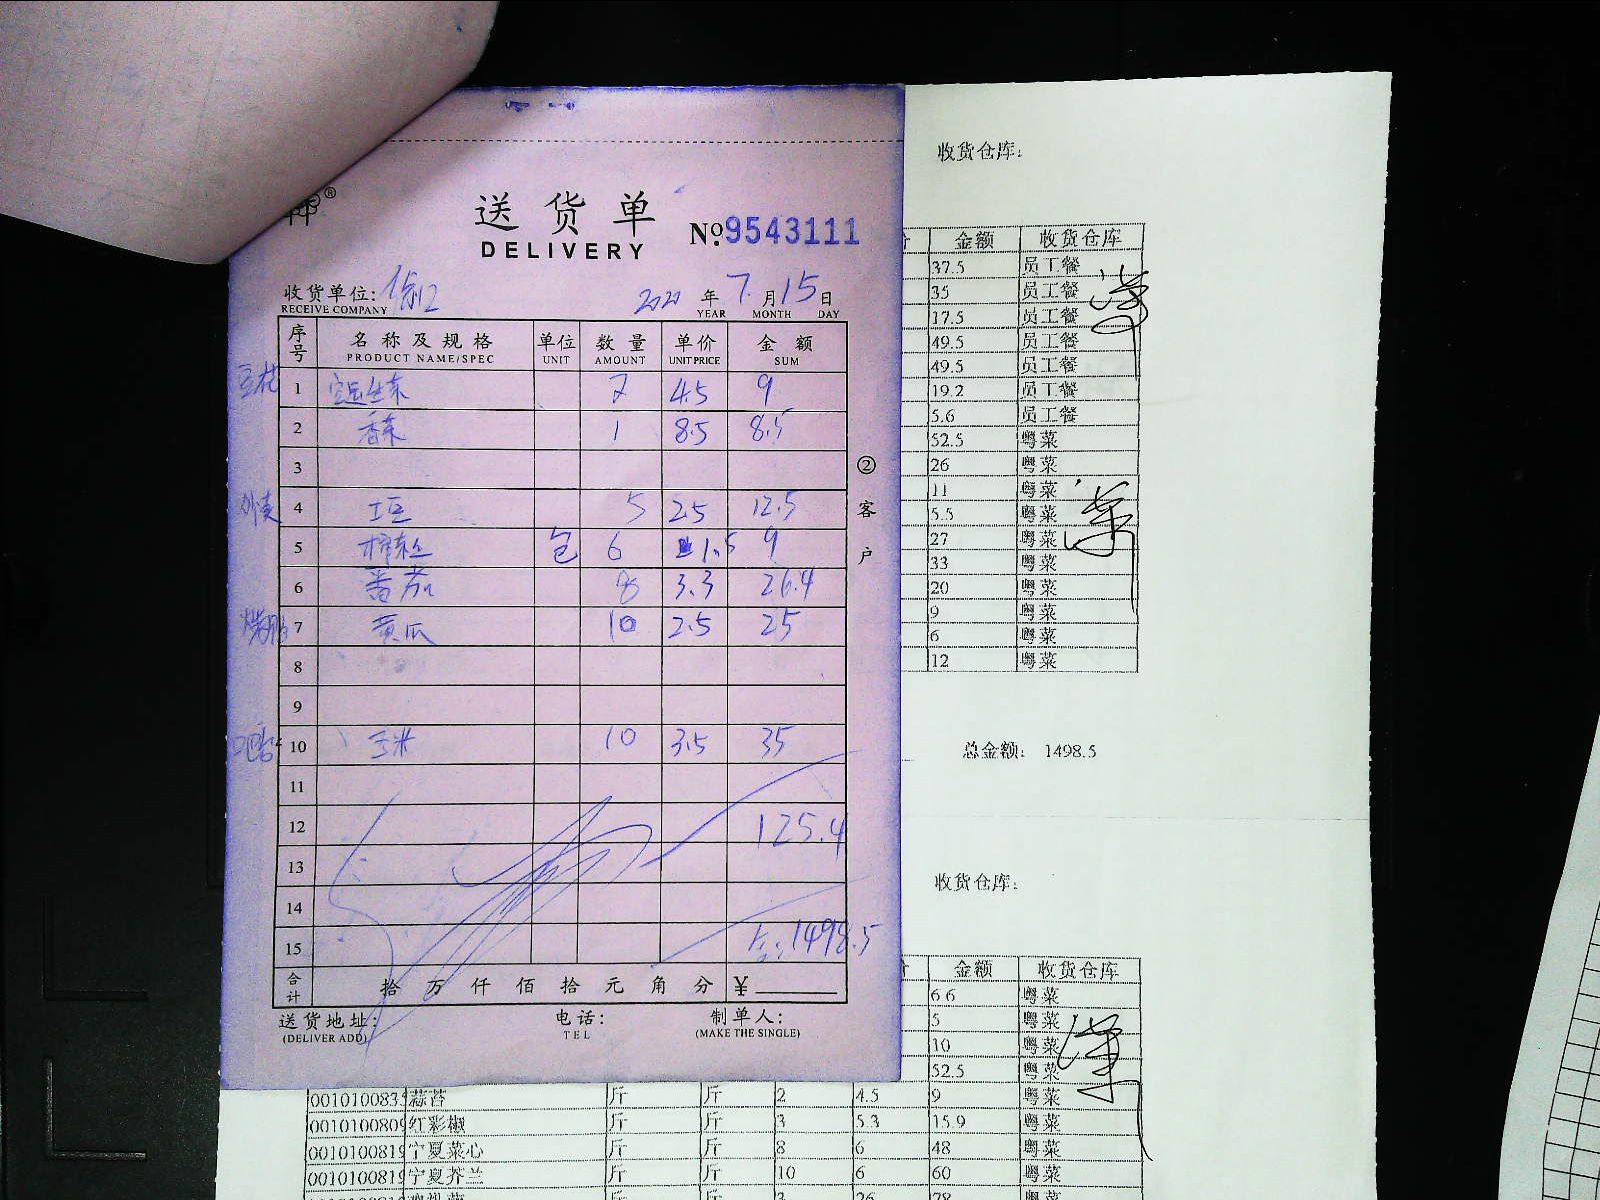 ®
送货单
DELIVERY
No. 9543111
收货单位:
RECEIVE COMPANY
2020 年 7 月 15 日
YEAR MONTH DAY
序号 名称及规格 单位 数量 单价 金额
PRODUCT NAME/SPEC UNIT AMOUNT UNIT PRICE SUM
豆花 1 生菜 2 4.5 9
2 香菜 1 8.5 8.5
3
外卖 4 土豆 5 2.5 12.5
5 榨菜丝 包 6 1.5 9
6 番茄 8 3.3 26.4
烧腊 7 黄瓜 10 2.5 25
8
9
10 玉米 10 3.5 35
11
12 125.4
13
14
15 合:1498.5
合计 拾 万 仟 佰 拾 元 角 分 ¥
送货地址: 电话: 制单人:
(DELIVER ADD) TEL (MAKE THE SINGLE)
② 客户
收货仓库:
金额 收货仓库
37.5 员工餐
35 员工餐
17.5 员工餐
49.5 员工餐
49.5 员工餐
19.2 员工餐
5.6 员工餐
52.5 粤菜
26 粤菜
11 粤菜
5.5 粤菜
27 粤菜
33 粤菜
20 粤菜
9 粤菜
6 粤菜
12 粤菜
总金额: 1498.5
收货仓库:
金额 收货仓库
6.6 粤菜
5 粤菜
10 粤菜
52.5 粤菜
001010083 蒜苔 斤 斤 2 4.5 9 粤菜
001010080 红彩椒 斤 斤 3 5.3 15.9 粤菜
001010081 宁夏菜心 斤 斤 8 6 48 粤菜
001010081 宁夏芥兰 斤 斤 10 6 60 粤菜
斤 斤 3 26 78 粤菜